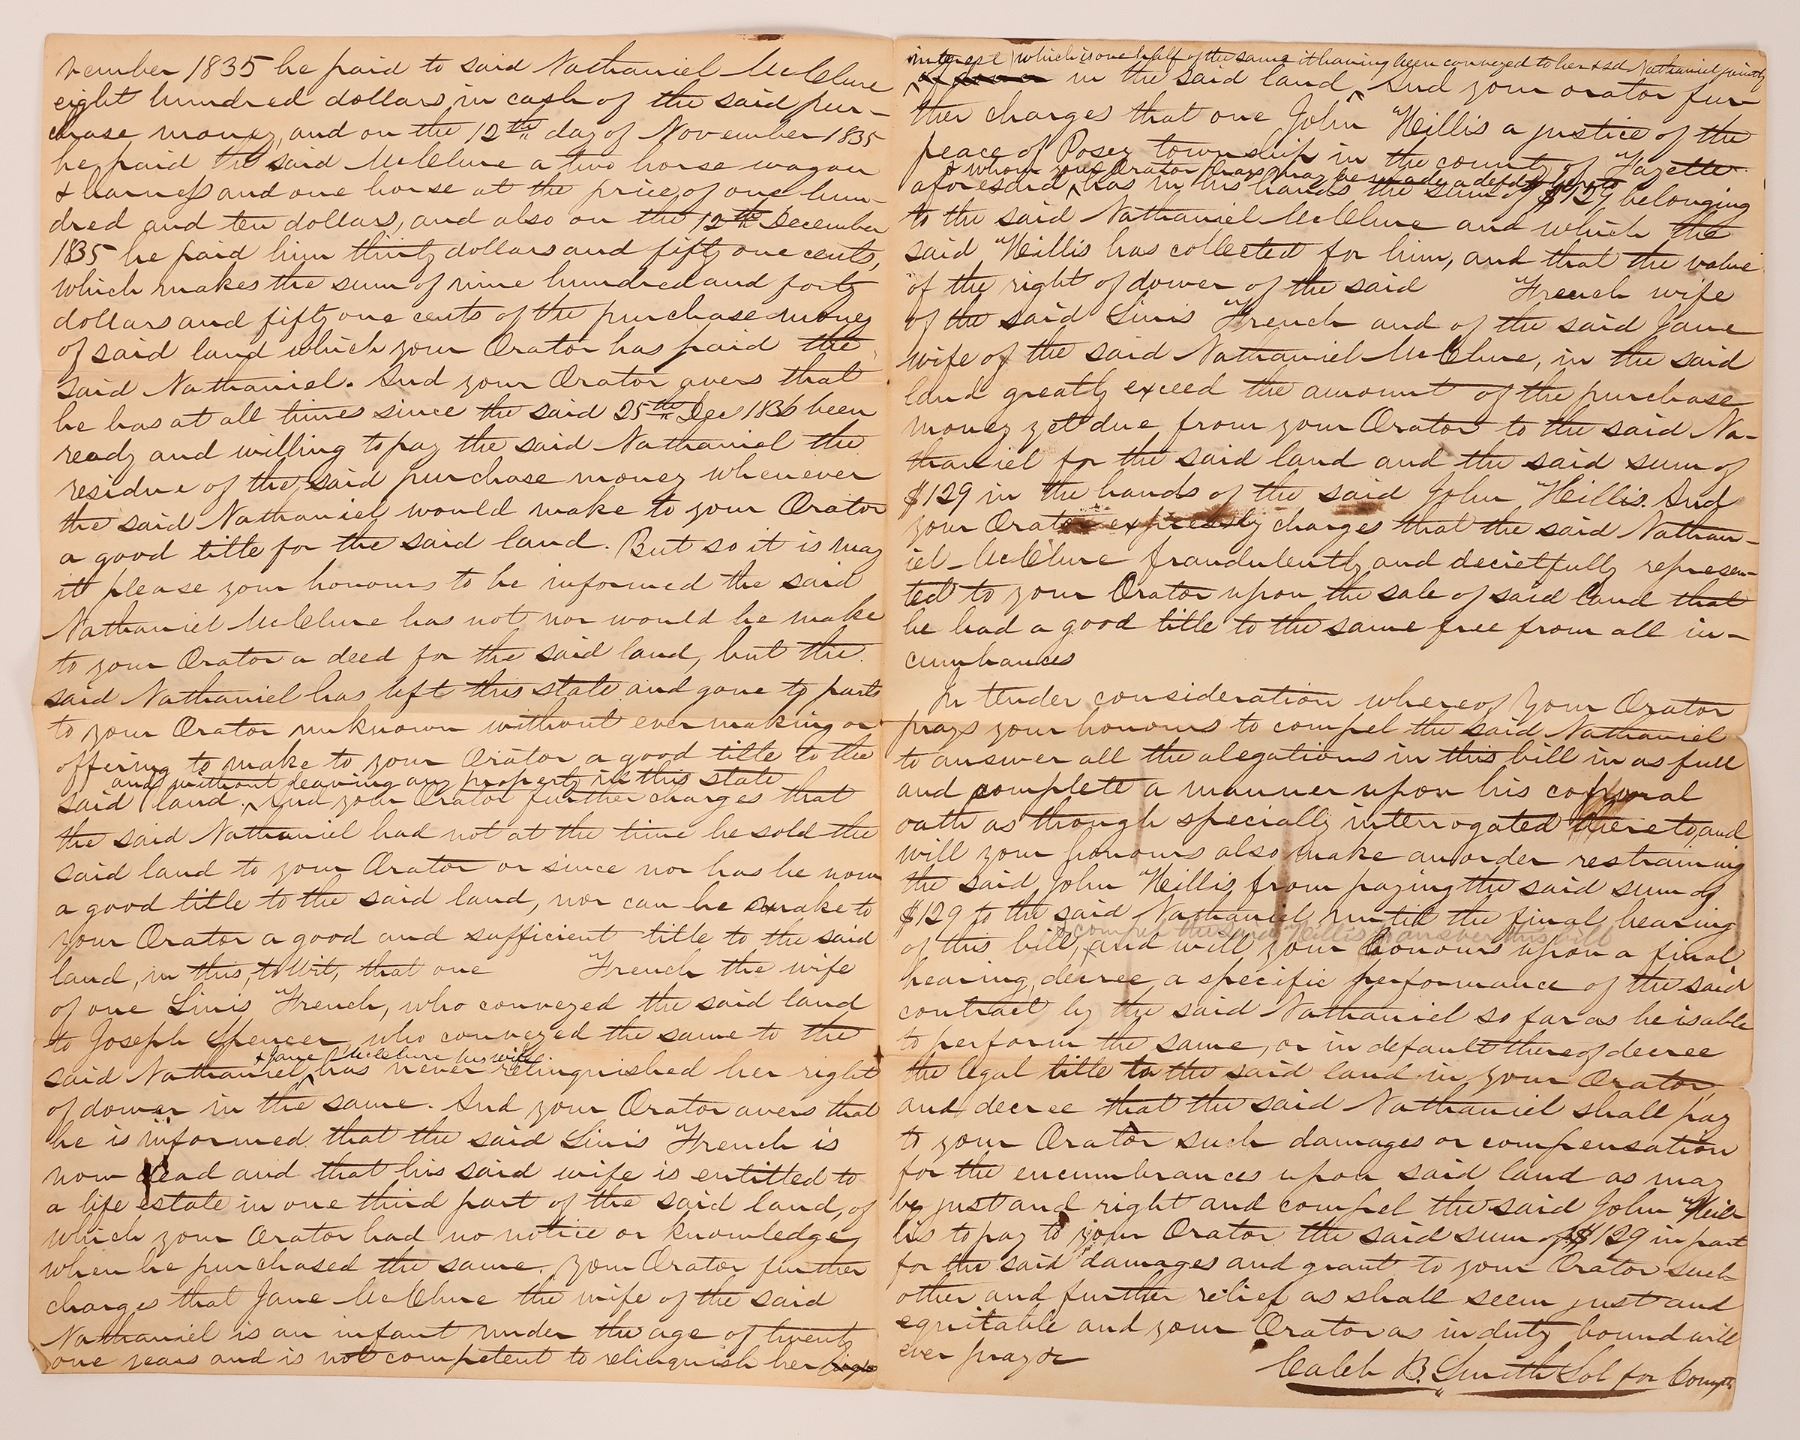 vember 1835 he paid to said Nathaniel McClure
eight hundred dollars in cash of the said pur-
chase money, and on the 12th day of November 1835
he paid the said McClure a two horse wagon
& harness and one horse at the price of one hun-
dred and ten dollars, and also on the 12th December
1835 he paid him thirty dollars and fifty one cents,
which makes the sum of nine hundred and forty
dollars and fifty one cents of the purchase money
of said land which your Orator has paid the
said Nathaniel. And your Orator avers that
he has at all times since the said 25th Dec 1836 been
ready and willing to pay the said Nathaniel the
residue of the said purchase money whenever
the said Nathaniel would make to your Orator
a good title for the said land. But so it is may
it please your honours to be informed the said
Nathaniel McClure has not nor would he make
to your Orator a deed for the said land, but the
said Nathaniel has left this state and gone to parts
to your Orator unknown without ever making or
offering to make to your Orator a good title to the
and without leaving any property in this state
said land. And your Orator further charges that
the said Nathaniel had not at the time he sold the
said land to your Orator or since nor has he now
a good title to the said land, nor can he make to
your Orator a good and sufficient title to the said
land, in this, to wit, that one French the wife
of one Linis French, who conveyed the said land
to Joseph Spencer who conveyed the same to the
& Jane McClure his wife
said Nathaniel has never relinquished her right
of dower in the same. And your Orator avers that
he is informed that the said Linis French is
now dead and that his said wife is entitled to
a life estate in one third part of the said land, of
which your Orator had no notice or knowledge
when he purchased the same. Your Orator further
charges that Jane McClure the wife of the said
Nathaniel is an infant under the age of twenty
one years and is not competent to relinquish her right
interest (which is one half of the same it having been conveyed to her & sd Nathaniel jointly
of dower in the said land. And your orator fur-
ther charges that one John Hillis a justice of the
peace of Posey township in the county of Fayette
& whom your Orator prays may be made a deft hereto
aforesaid has in his hands the sum of $129 belonging
to the said Nathaniel McClure and which the
said Hillis has collected for him, and that the value
of the right of dower of the said French wife
of the said Linis French and of the said Jane
wife of the said Nathaniel McClure, in the said
land greatly exceed the amount of the purchase
money yet due from your Orator to the said Na-
thaniel for the said land and the said sum of
$129 in the hands of the said John Hillis. And
your Orator expressly charges that the said Nathan-
iel McClure fraudulently and decietfully represen-
ted to your Orator upon the sale of said land that
he had a good title to the same free from all in-
cumbrances
In tender consideration whereof your Orator
prays your honours to compel the said Nathaniel
to answer all the alegations in this bill in as full
and complete a manner upon his corporal
oath as though specially interrogated thereto, and
will your honours also make an order restraining
the said John Hillis from paying the said sum of
$129 to the said Nathaniel until the final hearing
& compel the said Hillis to answer this bill
of this bill, and will your honours upon a final
hearing, decree a specific performance of the said
contract by the said Nathaniel so far as he is able
to perform the same, or in default thereof decree
the legal title to the said land in your Orator,
and decree that the said Nathaniel shall pay
to your Orator such damages or compensation
for the encumbrances upon said land as may
be just and right and compel the said John Hil-
lis to pay to your Orator the said sum of $129 in part
for the said damages and grant to your Orator such
other and further relief as shall seem just and
equitable and your Orator as in duty bound will
ever pray &c
Caleb B. Smith Sol for Compt